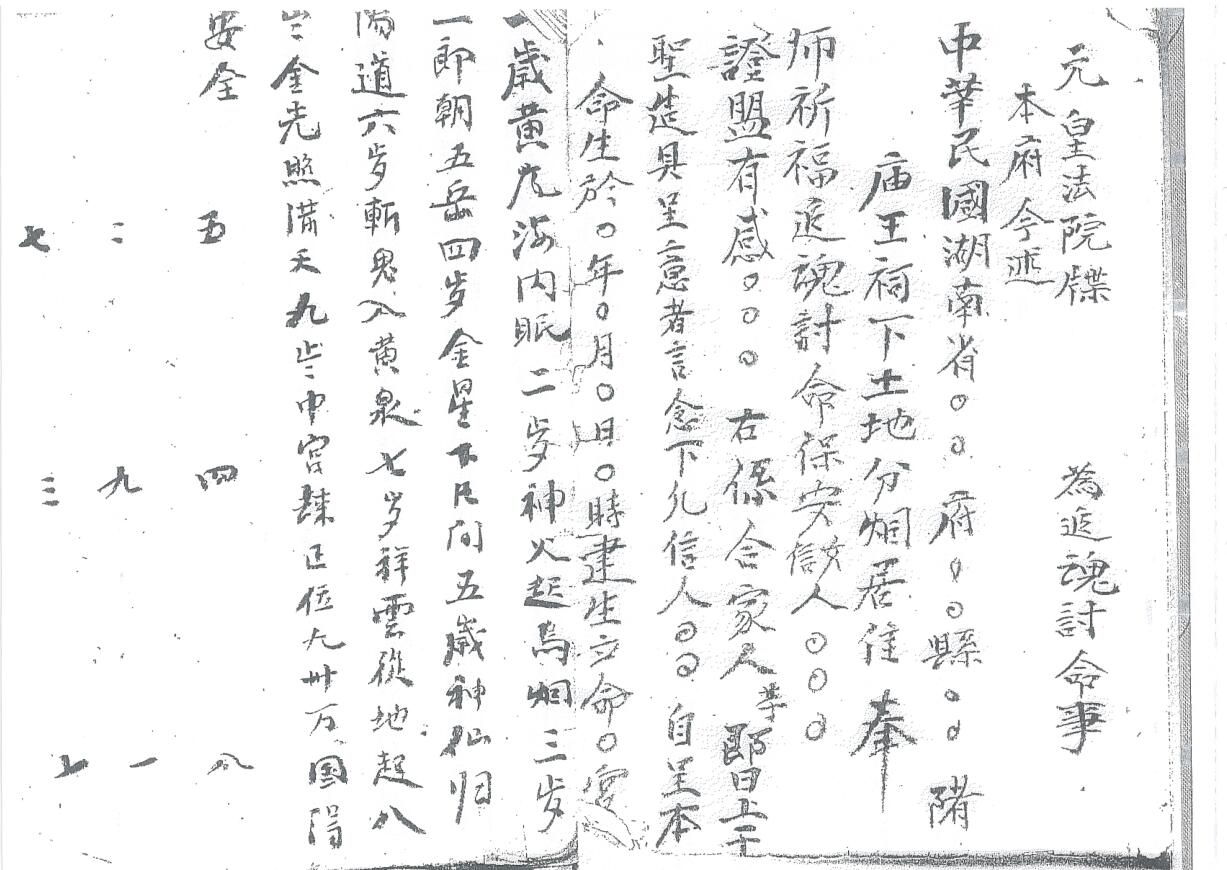 元皇法院牒 為追魂討命事
本府今迹
中華民國湖南省○○府○○縣○○
庙王祠下土地分烟居住 奉
师祈福追魂討命保安信女人○○○
證盟有感○○○ 右係合家人等 即日上干
聖造具呈意者言念下凡信人○○自呈本
命生於○年○月○日○時建生立命○宮
一歲黄 海内眠二步神火起烏烟三步
一郎朝五岳四步金星下 间五歲神仙归
陽道六步斬鬼入黄泉七步祥雲從地起八
步金光照满天九步中宮 正位九卅万国得
安全
五 四 八
二 九 一
七 三